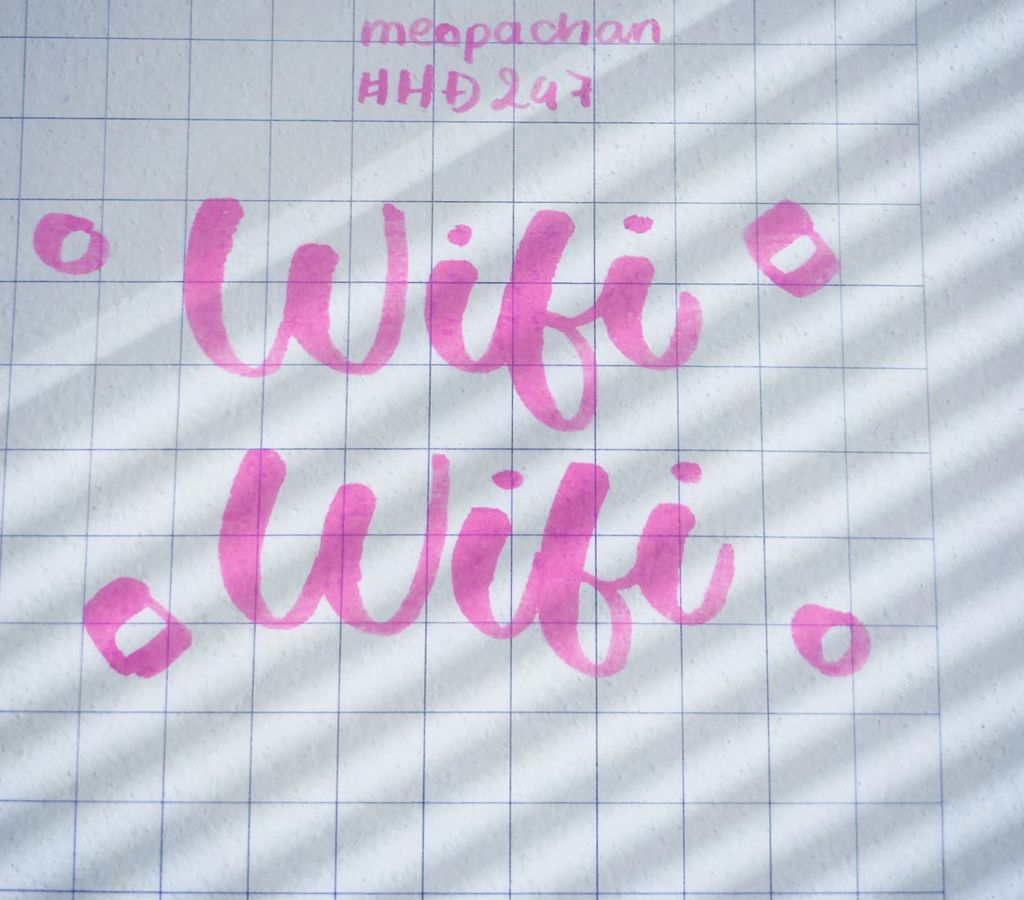 meopachan
HHĐ247
Wifi
Wifi